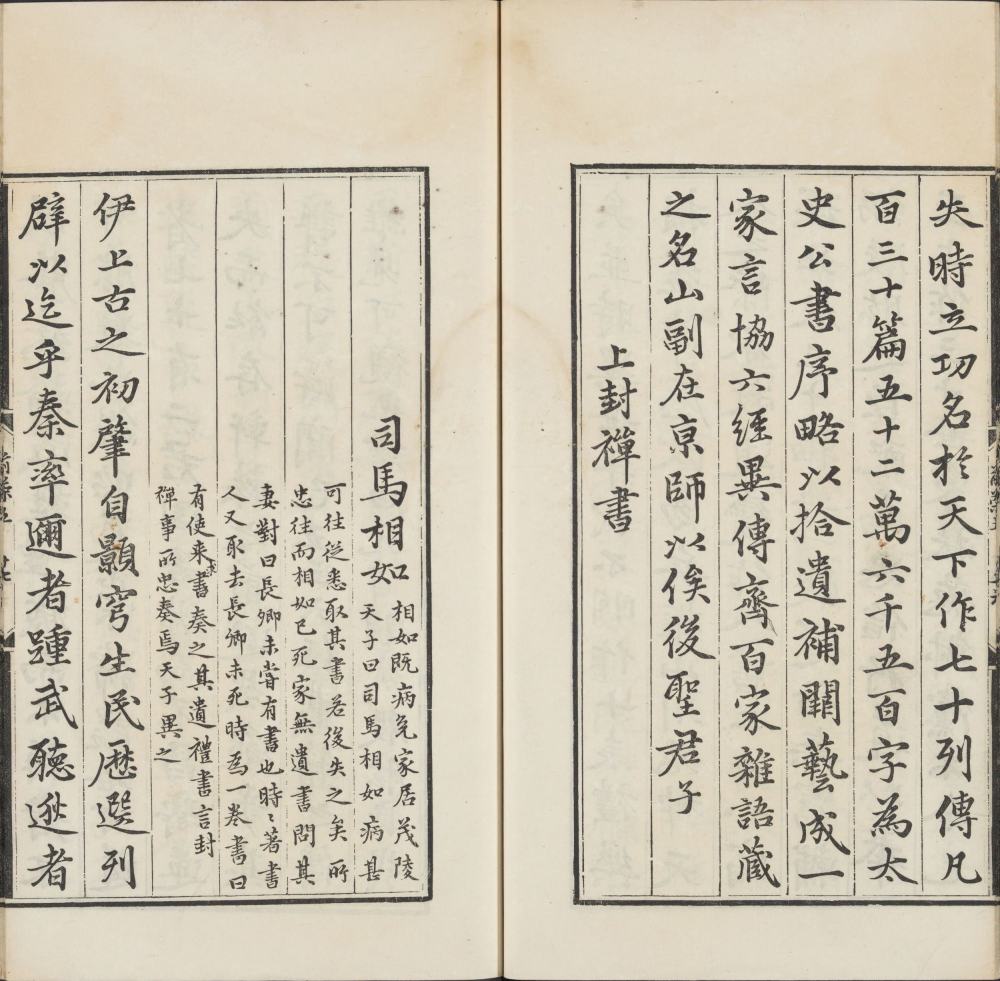 失時立功名於天下作七十列傳凡
百三十篇五十二萬六千五百字為太
史公書序略以拾遺補闕藝成一
家言協六經異傳齊百家雜語藏
之名山副在京師以俟後聖君子
上封禪書
司馬相如
相如既病免家居茂陵
天子曰司馬相如病甚
可往從悉取其書若後失之矣所
忠往而相如已死家無遺書問其
妻對曰長卿未嘗有書也時〻著書
人又取去長卿未死時為一卷書曰
有使来求書奏之其遺禮書言封
禪事所忠奏焉天子異之
伊上古之初肇自顥穹生民歷選列
辟以迄乎秦率邇者踵武聽逖者